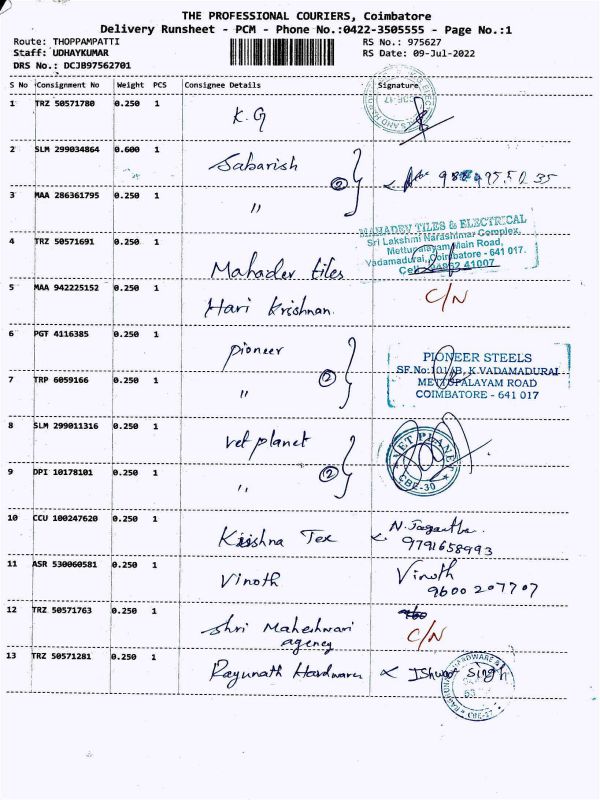 THE PROFESSIONAL COURIERS, Coimbatore
Delivery Runsheet - PCM - Phone No.:0422-3505555 - Page No.:1
Route: THOPPAMPATTI RS No.: 975627
Staff: UDHAYKUMAR RS Date: 09-Jul-2022
DRS No.: DCJB97562701
S No Consignment No Weight PCS Consignee Details Signature
1 TRZ 50571780 0.250 1 K.G
2 SLM 299034864 0.600 1 Sabarish
3 MAA 286361795 0.250 1 "
②
MAHADEV TILES & ELECTRICAL
Sri Lakshmi Narashimar Complex,
Mettupalayam Main Road,
Vadamadurai, Coimbatore - 641 017.
4 TRZ 50571691 0.250 1 Mahadev tiles
Cell: 41007
5 MAA 942225152 0.250 1 Hari Krishnan. C/N
6 PGT 4116385 0.250 1 pioneer
7 TRP 6059166 0.250 1 "
②
PIONEER STEELS
SF.No:101/B, K.VADAMADURAI
METTUPALAYAM ROAD
COIMBATORE - 641 017
8 SLM 299011316 0.250 1 vet planet
9 DPI 10178101 0.250 1 "
②
VET PLANET
CBE-30
10 CCU 100247620 0.250 1 Krishna Tex
9791658993
11 ASR 530060581 0.250 1 Vinoth Vinoth
9600207707
12 TRZ 50571763 0.250 1 Shri Maheshwari agency C/N
13 TRZ 50571281 0.250 1 Ragunath Hardware Ishwar Singh
CBE-17